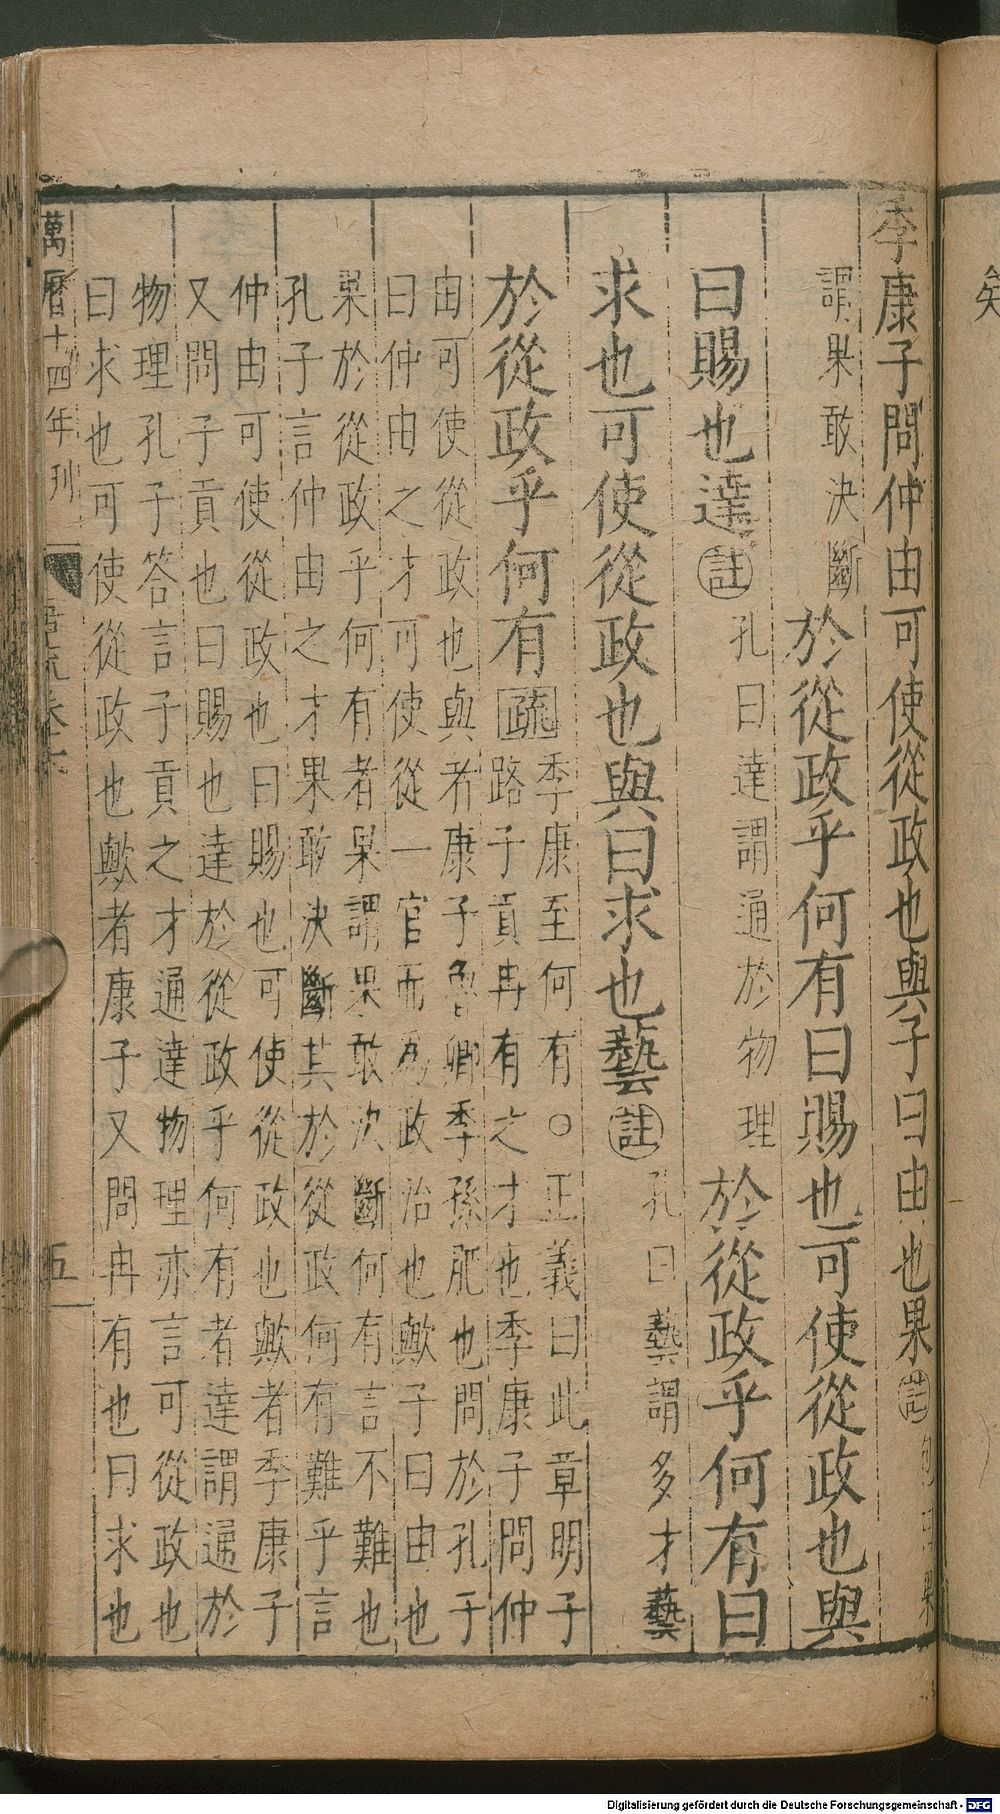 季康子問仲由可使從政也與子曰由也果註
謂果敢決斷於從政乎何有曰賜也可使從政也與
曰賜也達註孔曰達謂通於物理於從政乎何有曰
求也可使從政也與曰求也藝註孔曰藝謂多才藝
於從政乎何有疏季康至何有○正義曰此章明子
路子貢冉有之才也季康子問仲
由可使從政也與者康子魯卿季孫肥也問於孔子
曰仲由之才可使從一官而為政治也歟子曰由也
果於從政乎何有者果謂果敢決斷何有言不難也
孔子言仲由之才果敢決斷其於從政何有難乎言
仲由可使從政也曰賜也可使從政也歟者季康子
又問子貢也曰賜也達於從政乎何有者達謂通於
物理孔子答言子貢之才通達物理亦言可從政也
曰求也可使從政也歟者康子又問冉有也曰求也
萬曆十四年刊
五
矣
Digitalisierung gefördert durch die Deutsche Forschungsgemeinschaft - DFG